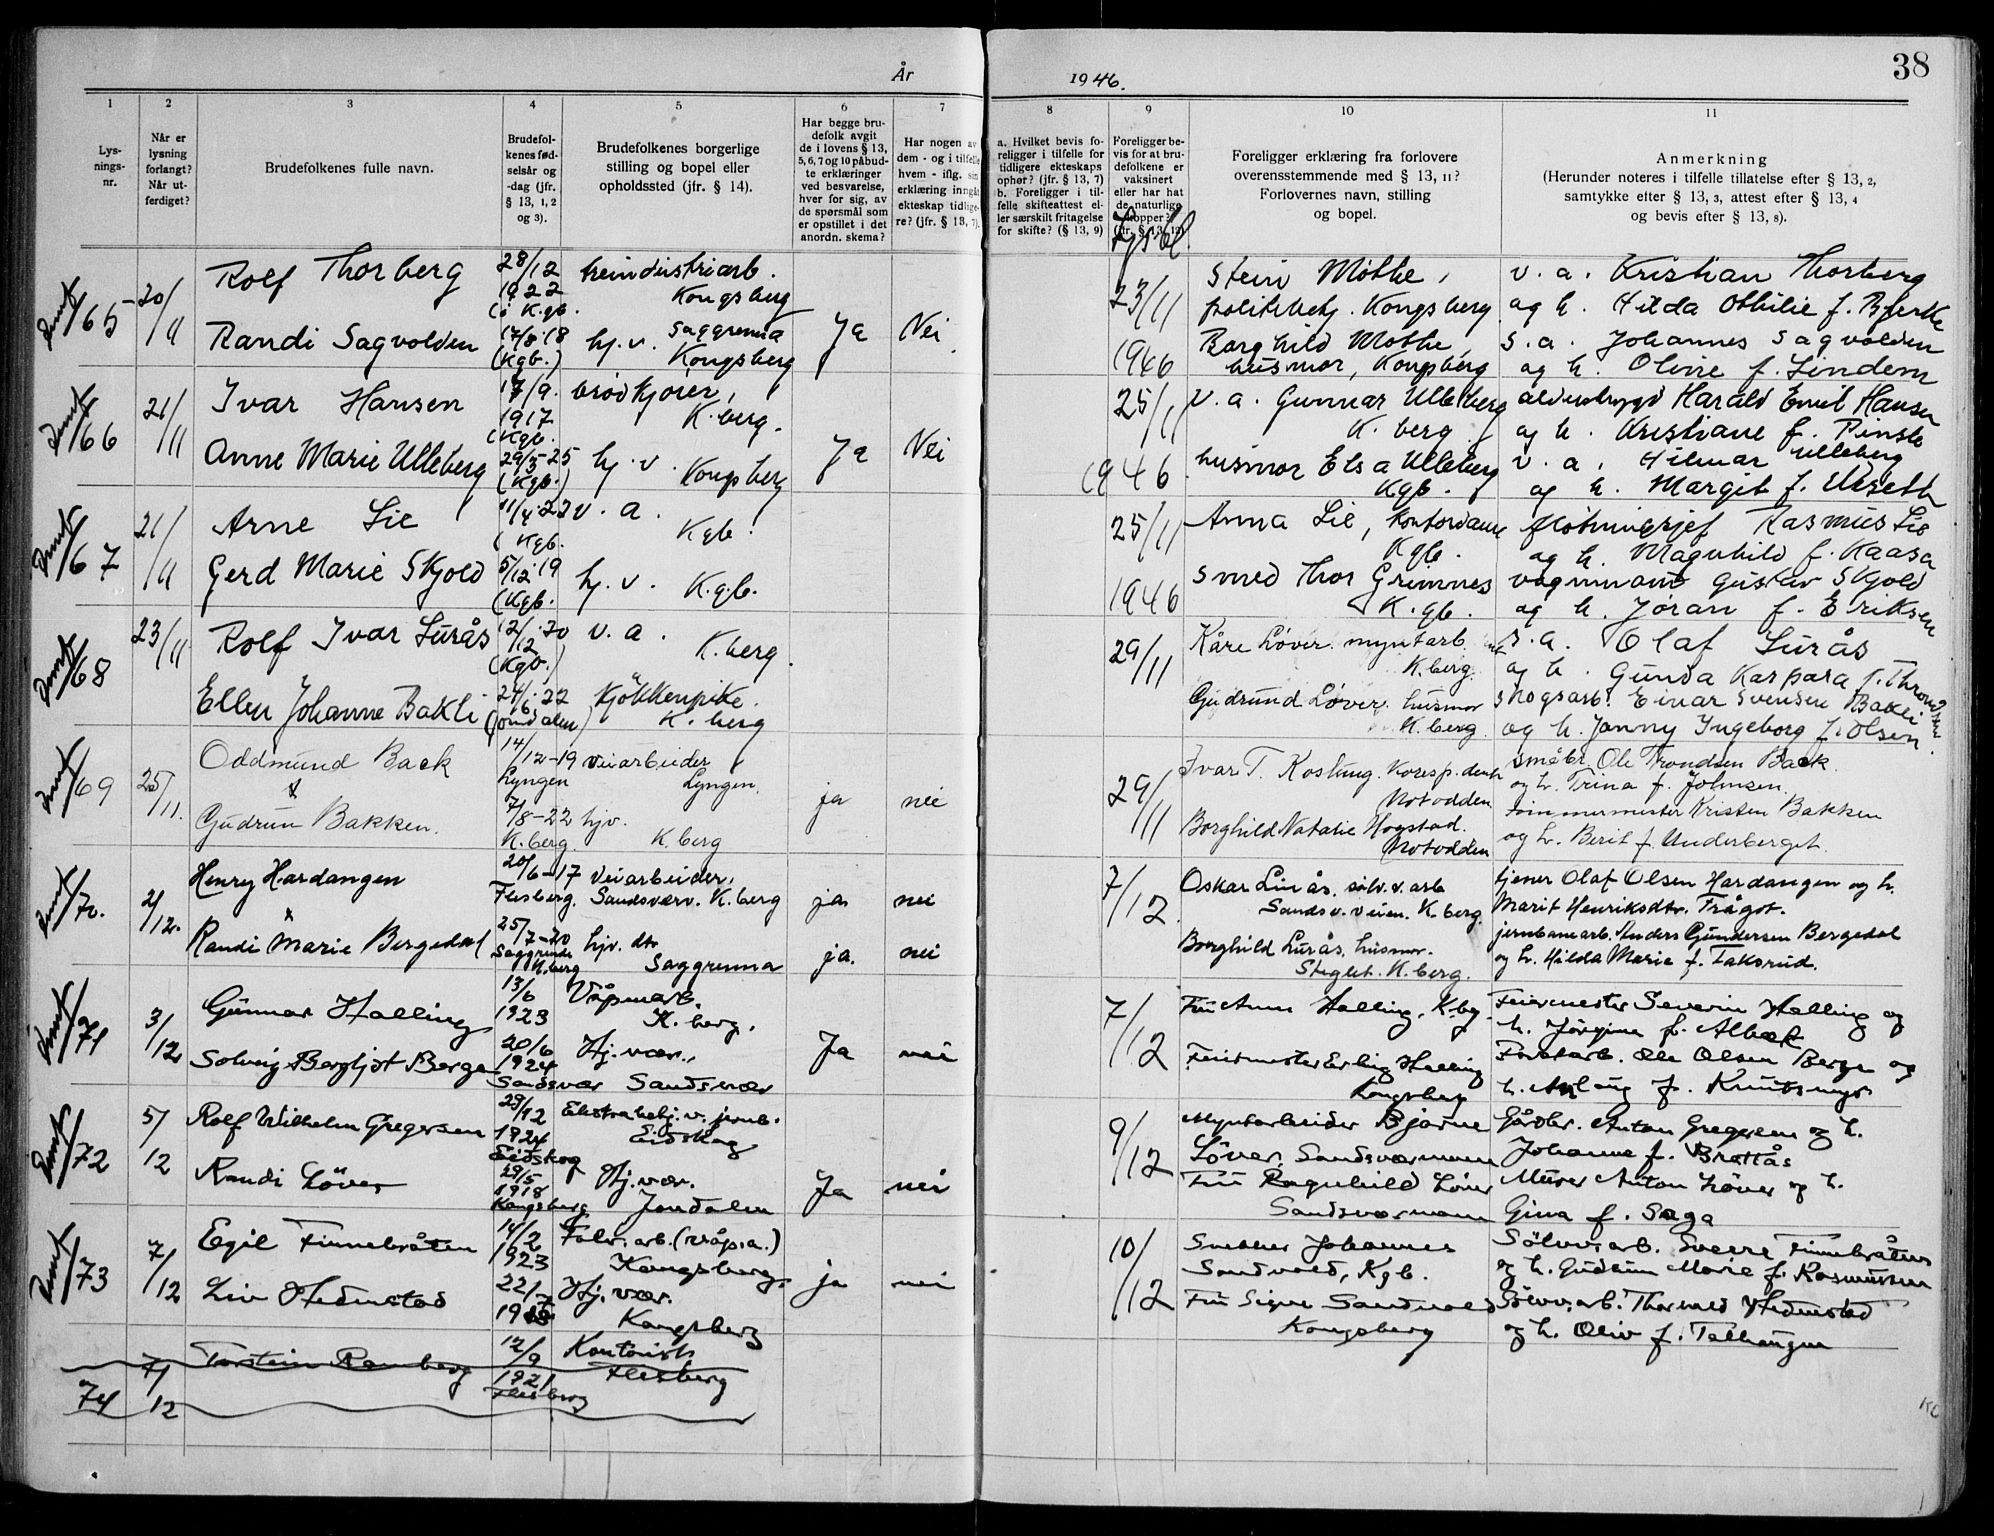 År 1946.
38
1 2 3 4 5 6 7 8 9 10 11
Lys-
nings-
nr.
Når er
lysning
forlangt?
Når ut-
ferdiget?
Brudefolkenes fulle navn.
Brudefol-
kenes fød-
selsår og
-dag (jfr.
§ 13, 1, 2
og 3).
Brudefolkenes borgerlige
stilling og bopel eller
opholdssted (jfr. § 14).
Har begge bru-
defolk avgit
de i lovens § 13,
5, 6, 7 og 10 påbud-
te erklæringer
ved besvarelse,
hver for sig, av
de spørsmål som
er opstillet i det
anordn. skema?
Har nogen av
dem - og i tilfelle
hvem - iflg. sin
erklæring inngått
ekteskap tidlige-
re? (jfr. § 13, 7).
a. Hvilket bevis fo-
religger i tilfelle for
tidligere ekteskaps
ophør? (jfr. § 13, 7)
b. Foreligger i til-
felle skifteattest el-
ler særskilt fritagelse
for skifte? (§ 13, 9)
Foreligger be-
vis for at bru-
defolkene er
vaksinert
eller har hat
de naturlige
kopper?
(jfr. § 13, 12)
Foreligger erklæring fra forlovere
overensstemmende med § 13, 11?
Forlovernes navn, stilling
og bopel.
Anmerkning
(Herunder noteres i tilfelle tillatelse efter § 13, 2,
samtykke efter § 13, 3, attest efter § 13, 4
og bevis efter § 13, 8).
65 20/11 Rolf Thorberg 28/12 1922 Kongsberg
Stein Mothe, v. a. Kristian Thorberg
23/11 politibetj. Kongsberg og h. Hilda Othilie f. Bjerke
Randi Sagvolden 17/8-18 (Kgb.) hj. v. Saggrenna Kongsberg Ja Nei
Borghild Mothe, s. a. Johannes Sagvolden
1946 husmor, Kongsberg og h. Oline f. Lindem
66 21/11 Ivar Hansen 17/9. 1917 (Kgb. brødkjører, K.berg.
25/11 v. a. Gunnar Ulleberg K. berg Harald Emil Hansen
og h. Kristiane f.
Anne Marie Ulleberg 29/5-25 (Kgb.) hj. v. Kongsberg Ja Nei
1946 husmor Elsa Ulleberg Kgb. v. a. Hilmar Ulleberg
og h. Margit f.
67 21/11 Arne Lie 11/4-22 (Kgb. v. a. Kgb.
25/11 Anna Lie, kontordame Kgb. Rasmus Lie
og h. Magnhild f. Kaasa
Gerd Marie Skjold 5/12-19 (Kgb. hj. v. K.gb.
1946 smed Thor Grimnes K.gb. vognmann Gustav Skjold
og h. Jøran f. Eriksen
68 23/11 Rolf Ivar Lurås 12/12-20 (Kgb.) v. a. K.berg.
29/11 Kåre Løver. myntarb K.berg. s. a. Olaf Lurås
og h. Gunda Kaspara f.
Ellen Johanne Bakli 24/6-22 (Jondalen) Kjøkkenpike. K. berg
Gudrund Løver. husmor K.berg. skogsarb. Einar Svensen Bakli
og h. Janny Ingeborg f. Olsen.
69 25/11. Oddmund Back 14/12-19 Lyngen veiarbeider Lyngen.
29/11 Ivar T. Korsp.dent Notodden småbr. Ole Trondsen Back.
og h. Trina f. Johnsen.
Gudrun Bakken. 7/8-22 K.berg. hjv. K.berg ja nei
Borghild Natalie Hogstad. Notodden tømmermester Kristen Bakken
og h. Berit f. Underberget.
70. 2/12. Henry Hardangen 20/6-17 Flesberg. veiarbeider. Sandsværv. K.berg ja nei
7/12. Oskar Lurås. sølv.v.arb Sandsv.veien. K.berg. tjener Olaf Olsen Hardangen og h.
Marit Henriksdtr. Trågot.
Randi Marie Bergedal 25/7-20 Saggrenda K.berg hjv. dtr Saggrenna ja. nei
Borghild Lurås, husmor. Steglet. K.berg. jernbanearb. Anders Gundersen Bergedal
og h. Hilda Marie f. Taksrud.
71 3/12 Gunnar Halling 13/6 1923 Våpenarb. K. berg.
7/12 Fru Anna Halling, K.bg. Feiermester Severin Halling og
h. Jørgine f. Albæk
Solveig Bergljot Berge 20/6 1924 Sandsvær Hj. vær., Sandsvær Ja nei
Feiermester Erling Halling Kongsberg Ole Olsen Berge og
h. Aslaug f.
72 5/12 Rolf Wilhelm Gregersen 29/12 1924 Eidskog Ekstrabetj. v. jernb. Eidskog
9/12 Myntarbeider Bjarne Løver, Sandsværmoen Gårdbr. Anton Gregersen og h.
Johanne f. Bråttås
Randi Løver 29/5 1918 Kongsberg Hj.vær. Jondalen Ja nei
Fru Ragnhild Løver Sandsværmoen Murer Anton Løver og h.
Gina f. Saga
73 7/12 Egil Finnebråten 14/2 1923 Fabr. arb. (våp.a.) Kongsberg.
10/12 Snekker Johannes Sandvold, Kgb. Sølvv.arb. Sverre Finnebråten
og h. Gudrun Marie f. Rasmussen
Liv Hedenstad 22/7 Hj. vær. Kongsberg ja nei
Fru Signe Sandvold Kongsberg Sølvv.arb. Thormod Hedenstad
og h. Oliv f. Tallaugen
74 7/12 Torstein Ramberg 12/9 1921 Flesberg Kontorist Flesberg